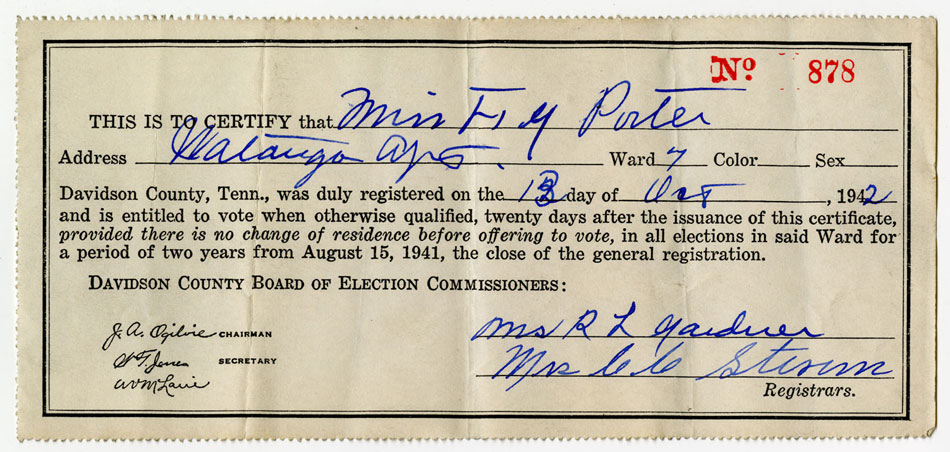 Nº 878
THIS IS TO CERTIFY that Miss F. Y Porter
Address Watauga Apts. Ward 7 Color Sex
Davidson County, Tenn., was duly registered on the day of Oct, 1942
and is entitled to vote when otherwise qualified, twenty days after the issuance of this certificate,
provided there is no change of residence before offering to vote, in all elections in said Ward for
a period of two years from August 15, 1941, the close of the general registration.
DAVIDSON COUNTY BOARD OF ELECTION COMMISSIONERS:
J. A. Ogilvie CHAIRMAN
SECRETARY
Mrs R L Gardner
Mrs C C
Registrars.